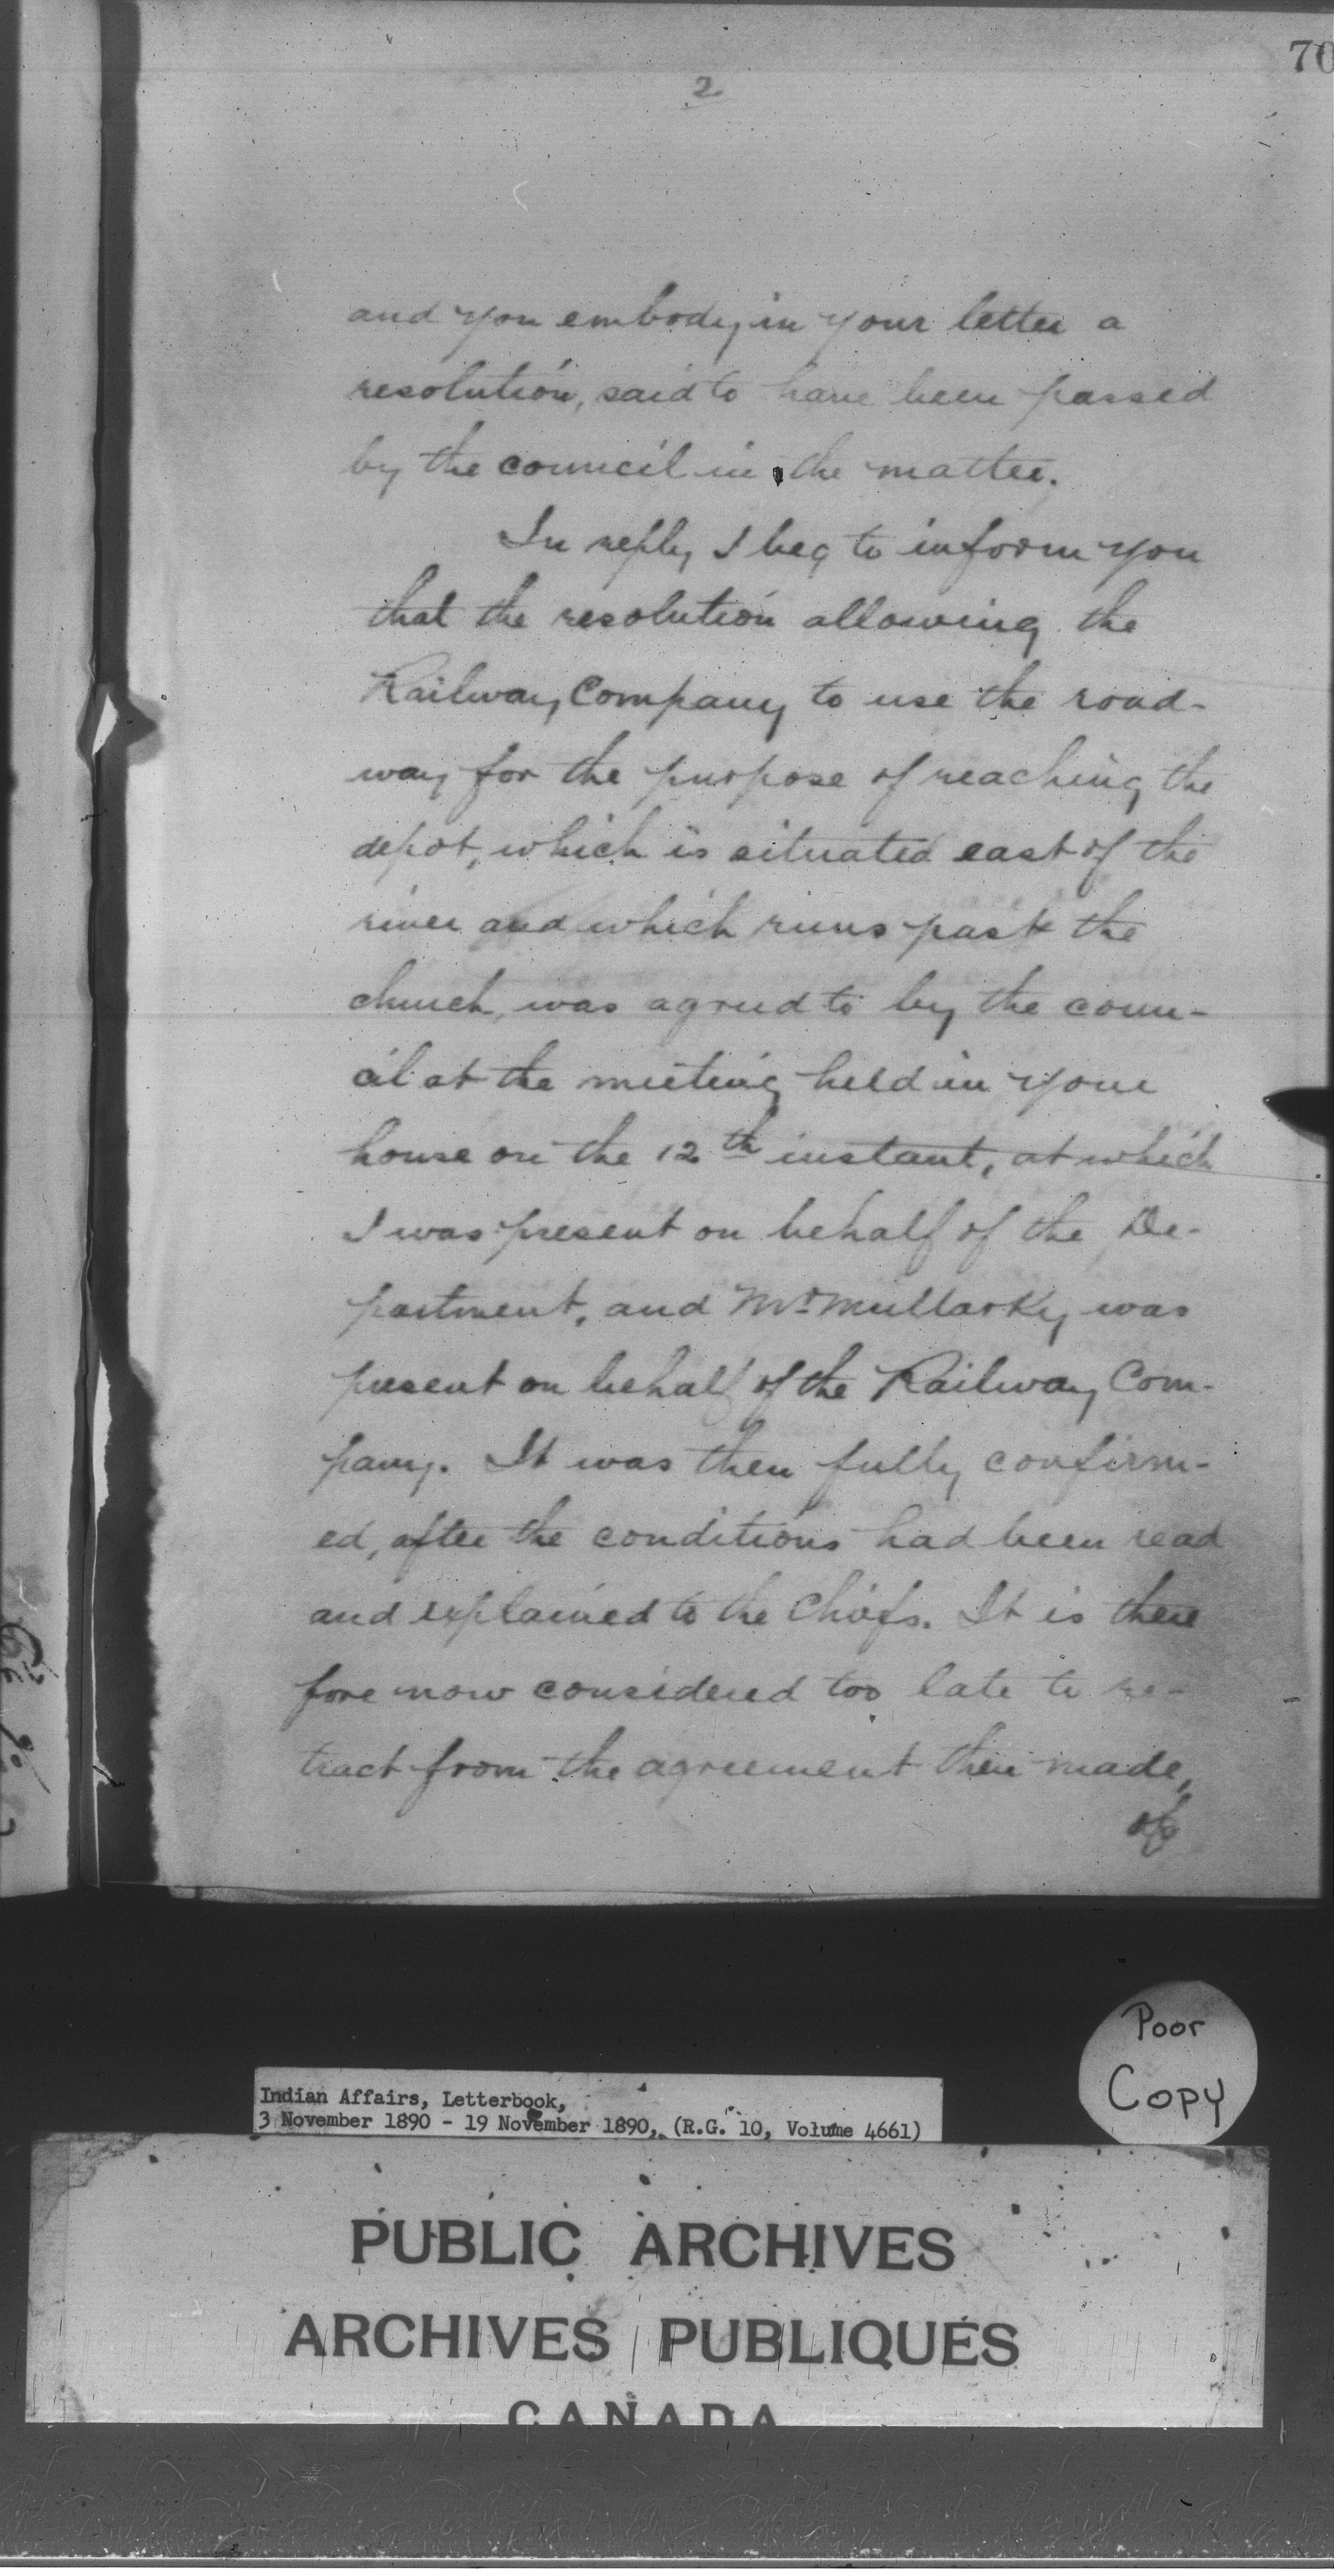 70
2
and you embody in your letter a
resolution, said to have been passed
by the council in the matter.
In reply I beg to inform you
that the resolution allowing the
Railway Company to use the road-
way for the purpose of reaching the
depot, which is situated east of the
river and which runs past the
church, was agreed to by the coun-
cil at the meeting held in your
house on the 12th instant, at which
I was present on behalf of the De-
partment, and Mr Mullarky was
present on behalf of the Railway Com-
pany. It was then fully confirm-
ed, after the conditions had been read
and explained to the Chiefs. It is there
fore now considered too late to re-
tract from the agreement then made,
Poor
Copy
Indian Affairs, Letterbook,
3 November 1890 - 19 November 1890, (R.G. 10, Volume 4661)
PUBLIC ARCHIVES
ARCHIVES PUBLIQUES
CANADA